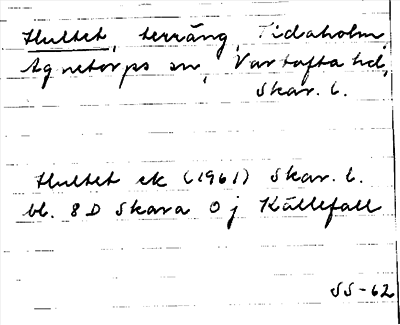 Hultet, terräng, Tidaholm,
Agnetorps sn, Vartofta hd,
Skar. l.
Hultet ek (1961) Skar. l.
bl. 8D Skara 0j Källefall
SS-62